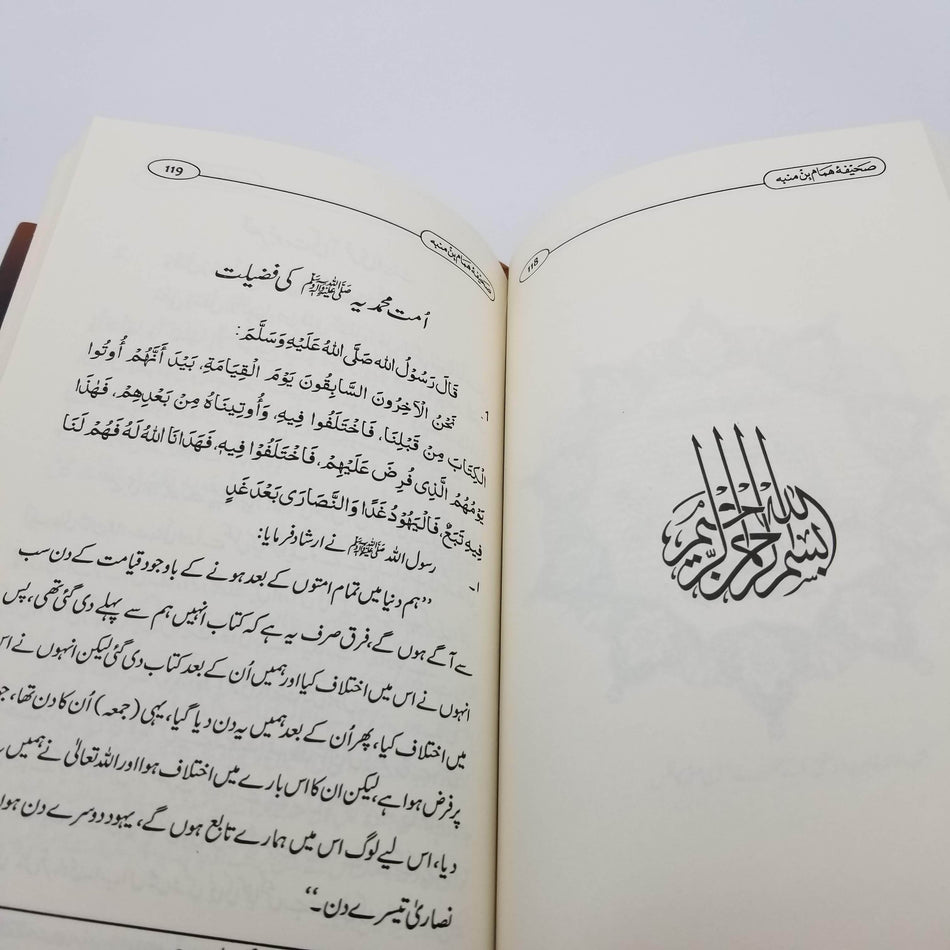 صَحِيْفَهٔ هَمَّام بِنْ مُنَبِّه
118
بسم الله الرحمن الرحيم
صَحِيْفَهٔ هَمَّام بِنْ مُنَبِّه
119
اُمت محمدیہ ﷺ کی فضیلت
قَالَ رَسُوْلُ اللهِ صَلَّى اللهُ عَلَيْهِ وَسَلَّمَ:
1. نَحْنُ الْآخِرُونَ السَّابِقُونَ يَوْمَ الْقِيَامَةِ، بَيْدَ أَنَّهُمْ أُوتُوا
الْكِتَابَ مِنْ قَبْلِنَا، فَاخْتَلَفُوا فِيهِ، وَأُوتِينَاهُ مِنْ بَعْدِهِمْ، فَهٰذَا
يَوْمُهُمُ الَّذِي فُرِضَ عَلَيْهِمْ، فَاخْتَلَفُوْا فِيهِ، فَهَدَانَا اللهُ لَهُ فَهُمْ لَنَا
فِيهِ تَبَعٌ، فَالْيَهُوْدُ غَدًا وَالنَّصَارَى بَعْدَ غَدٍ
۱۔ رسول اللہ ﷺ نے ارشاد فرمایا:
”ہم دنیا میں تمام امتوں کے بعد ہونے کے باوجود قیامت کے دن سب
سے آگے ہوں گے، فرق صرف یہ ہے کہ کتاب انہیں ہم سے پہلے دی گئی تھی، پس
انہوں نے اس میں اختلاف کیا اور ہمیں اُن کے بعد کتاب دی گئی لیکن انہوں نے اس
میں اختلاف کیا، پھر اُن کے بعد ہمیں یہ دن دیا گیا، یہی (جمعہ) اُن کا دن تھا، جو
پر فرض ہوا ہے، لیکن ان کا اس بارے میں اختلاف ہوا اور اللہ تعالیٰ نے ہمیں
دیا، اس لیے لوگ اس میں ہمارے تابع ہوں گے، یہود دوسرے دن ہوں
نصاریٰ تیسرے دن۔“